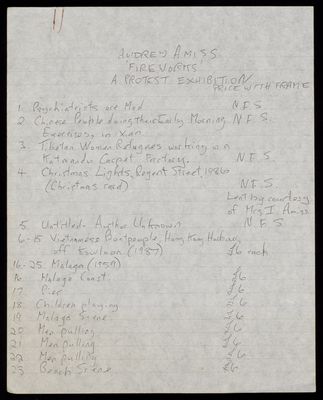 AUDREY AMISS
'FIREWORKS'
A PROTEST EXHIBITION
PRICE WITH FRAME
1. Psychiatrists are Mad N.F.S
2. Chinese People doing their Early Morning N.F.S.
Exercises, in Xian
3. Tibetan Women Refugees working in a
Katmandu Carpet Factory. N.F.S.
4. Christmas Lights, Regent Street, 1986
(Christmas card) N.F.S.
Lent by courtesy
of Mrs I. Amiss
5. Untitled - Author Unknown N.F.S
6-15 Vietnamese Boat people, Hong Kong Harbour
off (1987) £6 each
16-25. Malaga (1959)
16 Malaga Coast £6
17. Pier £6
18. Children playing £6
19 Malaga Scene £6
20 Men pulling £6
21 Men pulling £6
22 Men pulling £6
23 Beach Scene £6